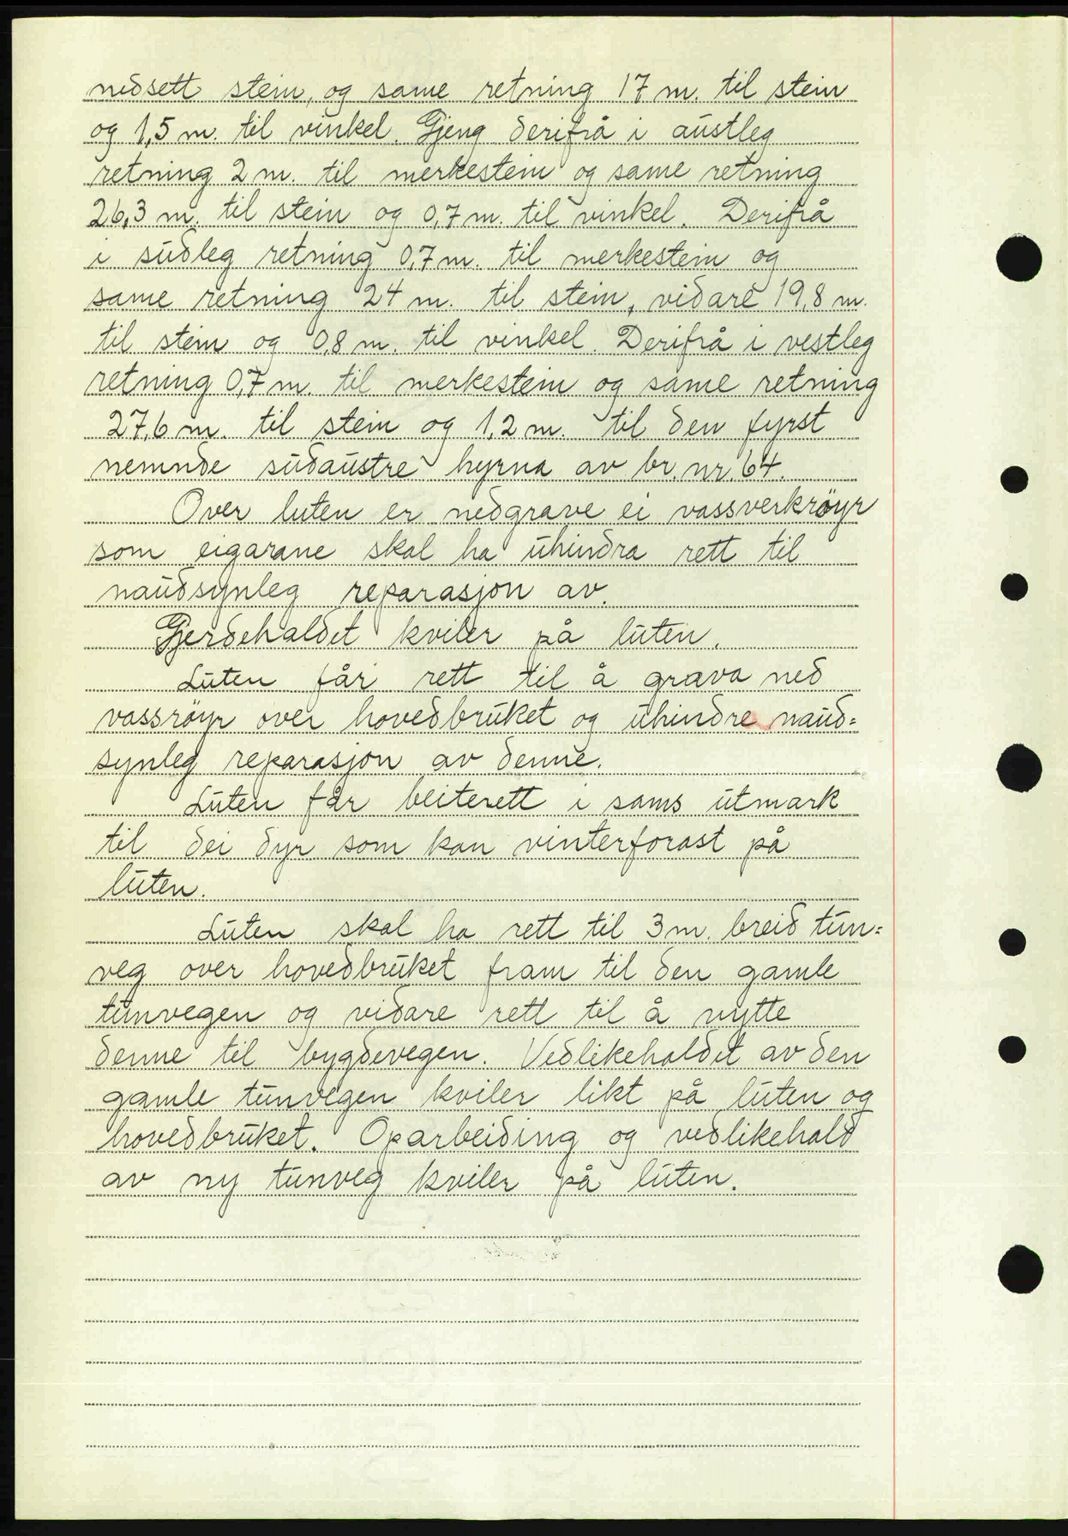 nedsett stein, og same retning 17 m. til stein
og 1,5 m. til vinkel. Gjeng derifrå i austleg
retning 2 m. til merkestein og same retning
26,3 m. til stein og 0,7 m. til vinkel. Derifrå
i sudleg retning 0,7 m. til merkestein og
same retning 24 m. til stein, vidare 19,8 m.
til stein og 0,8 m. til vinkel. Derifrå i vestleg
retning 0,7 m. til merkestein og same retning
27,6 m. til stein og 1,2 m. til den fyrst
nemnde sudaustre hyrna av br. nr. 64.
Over luten er nedgrave ei vassverkrøyr
som eigarane skal ha uhindra rett til
naudsynleg reparasjon av.
Gjerdehaldet kviler på luten.
Luten får rett til å grava ned
vassrøyr over hovedbruket og uhindre naud=
synleg reparasjon av denne.
Luten får beiterett i sams utmark
til dei dyr som kan vinterforast på
luten.
Luten skal ha rett til 3 m. breid tun=
veg over hovedbruket fram til den gamle
tunvegen og vidare rett til å nytte
denne til bygdevegen. Vedlikehaldet av den
gamle tunvegen kviler likt på luten og
hovedbruket. Oparbeiding og vedlikehald
av ny tunveg kviler på luten.